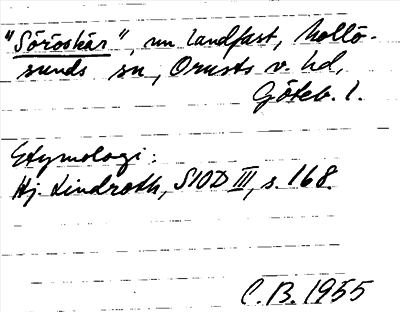 "Söröskär", nu landfast, Mollö-
sunds sn, Orusts v. hd,
Göteb. l.
Etymologi:
Hj. Lindroth, SIOD III, s. 168.
C.B. 1955